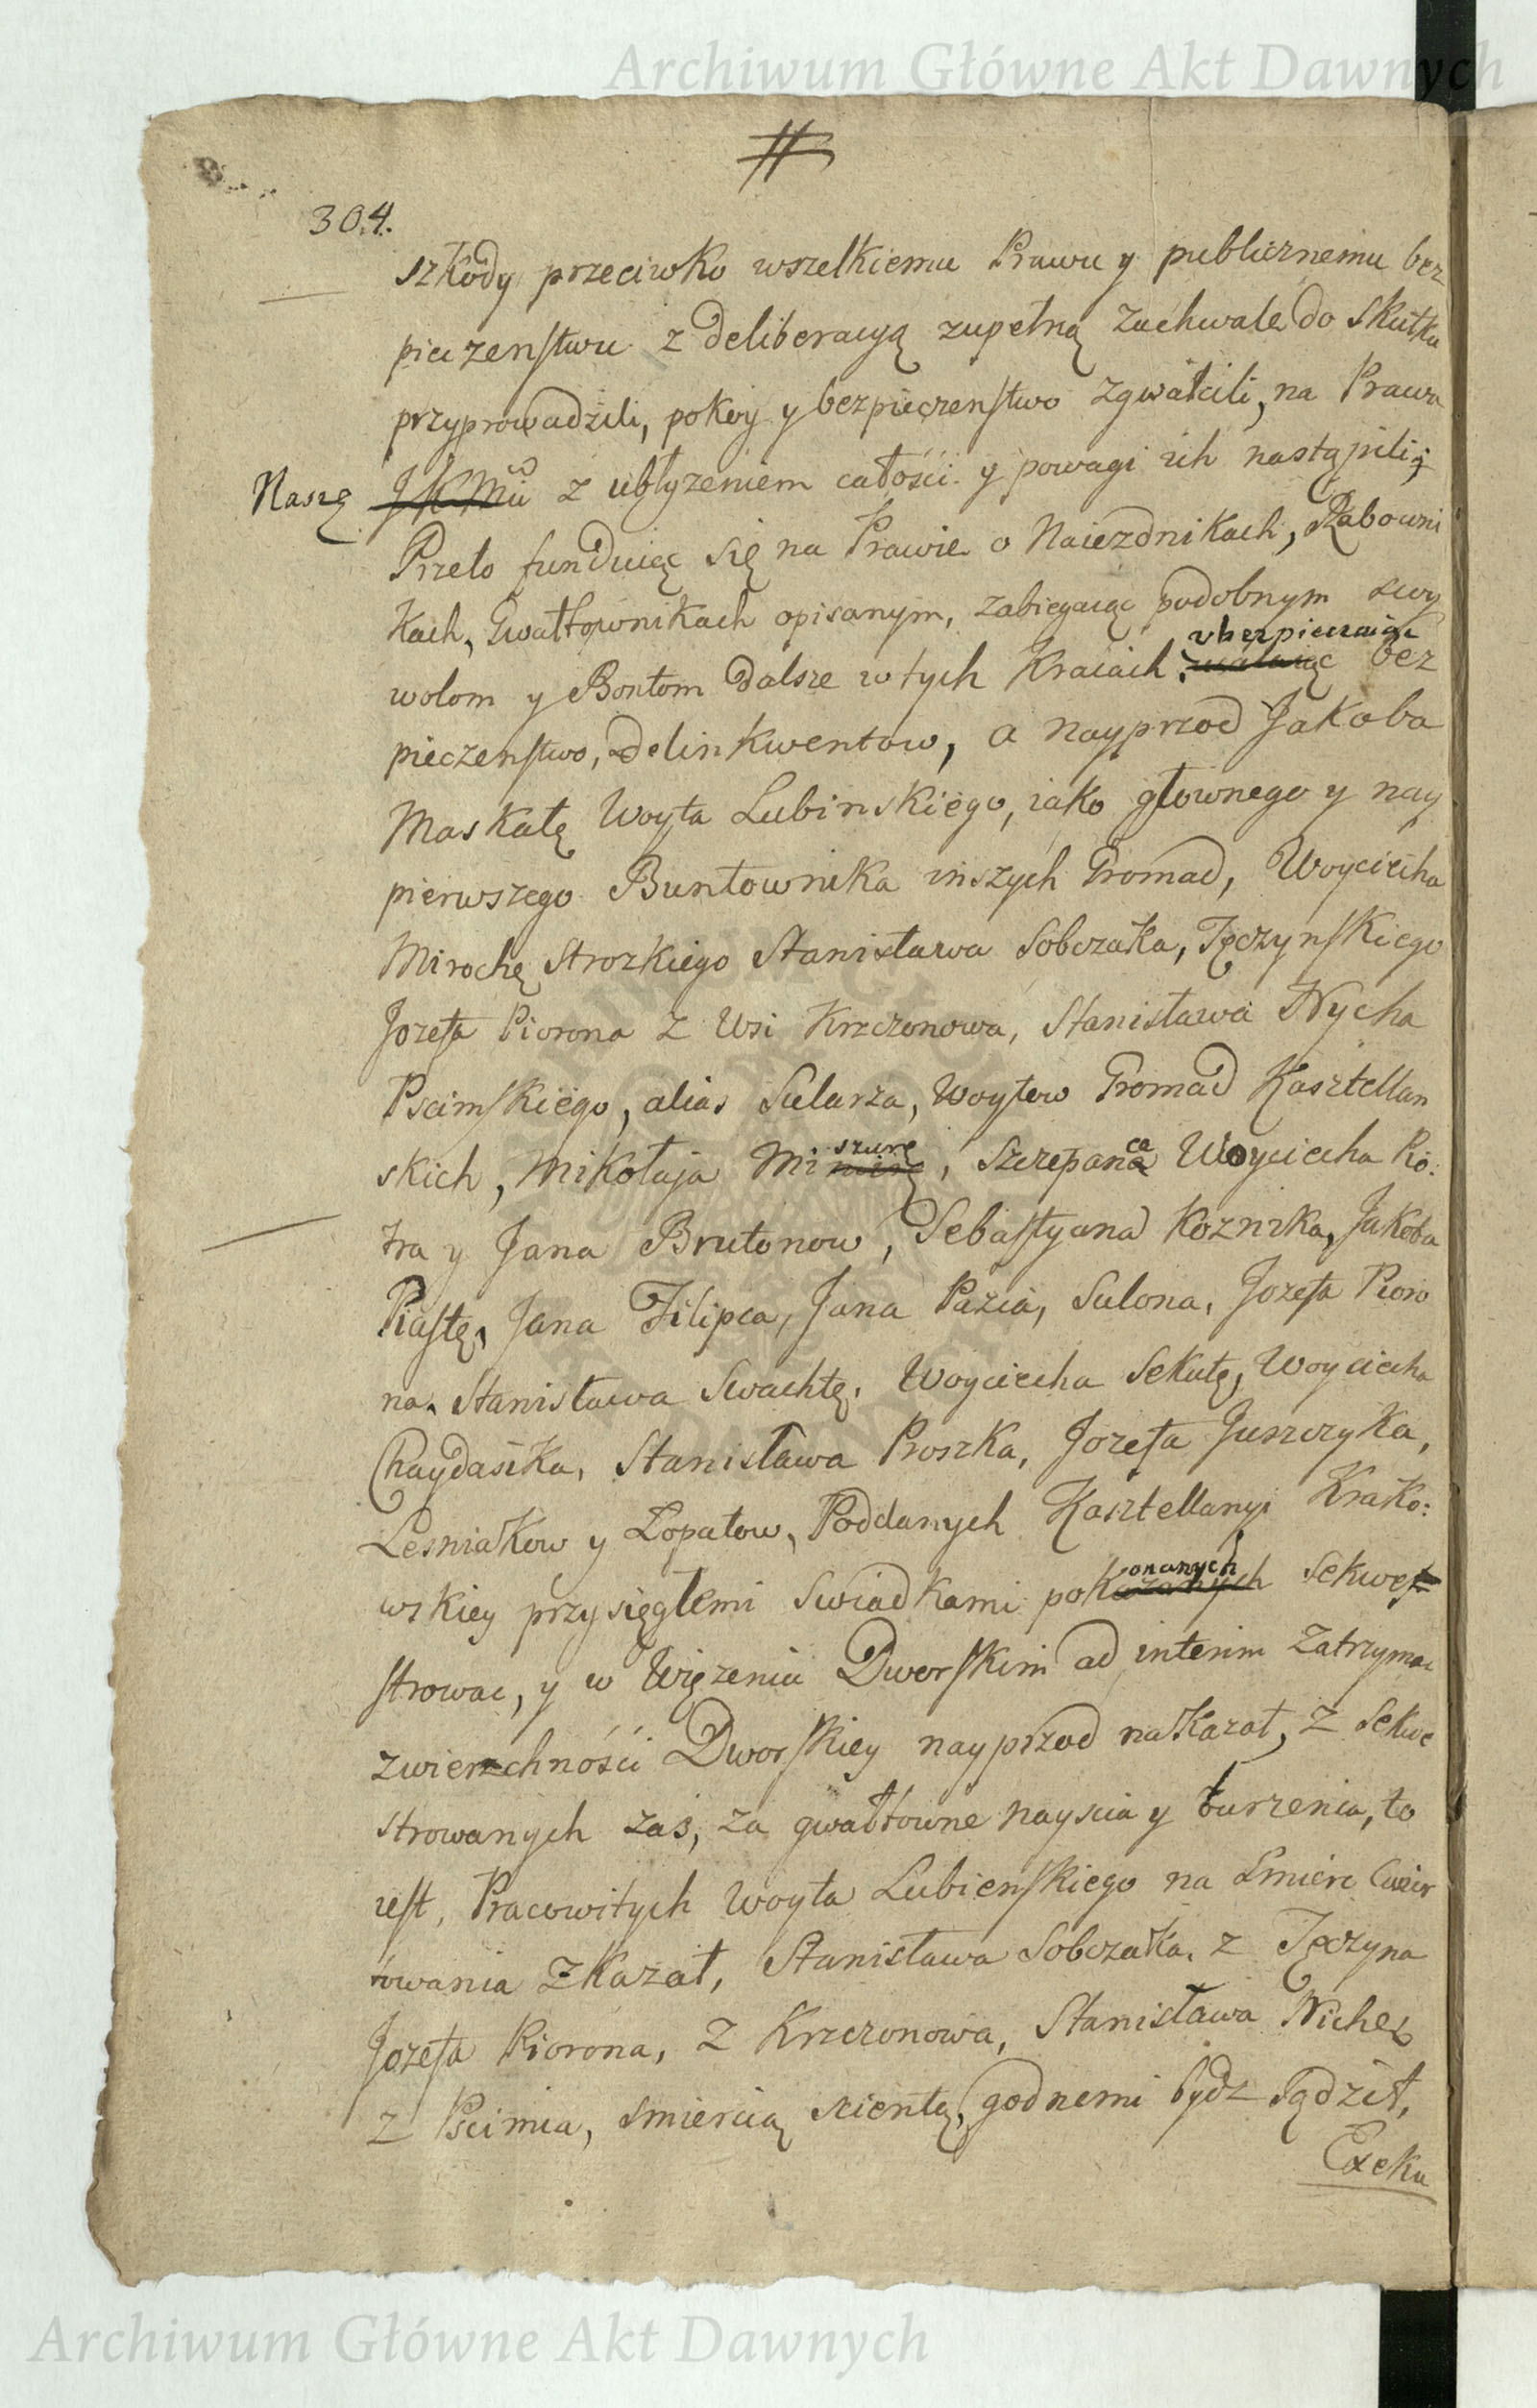 Archiwum Główne Akt Dawnych
304.
szkody przeciwko wszelkiemu Prawu y publicznemu bez
pieczenstwu z deliberacyą zupełną zuchwale do skutku
przyprowadzili, pokoy y bezpieczenstwo zgwałcili, na Prawa
Naszę JKMci z ubłyzeniem całości y powagi ich nastąpili;
Przeto funduiąc się na Prawie o Naiezdnikach, Rabowni
kach, Gwałtownikach opisanym, zabiegaiąc podobnym swy
ubezpieczaiąc
wolom y Bontom dalsze w tych Kraiach bez
pieczenstwo, delinkwentow, a nayprzod Jakoba
Maskałę Woyta Lubinskiego, iako głownego y nay
pierwszego Buntownika inszych Gromad, Woyciecha
Mirochę Strozkiego Stanisława Sobczaka, Tęczynskiego
Jozefa Piorona z Wsi Krzczonowa, Stanisława Nycha
Pscimskiego, alias Sularza, Woytow Gromad Kasztellan
skich, Mikołaja Miszurę, Szczepanca Woyciecha Pio:
tra y Jana Brutonow, Sebastyana Koznika, Jakoba
Piastę, Jana Filipca, Jana Pazia, Sulona, Jozefa Pioro
na, Stanisława Swachtę, Woyciecha Sekułę, Woyciecha
Chaydasika, Stanisława Proszka, Jozefa Juszczyka,
Lesniakow y Łopatow, Poddanych Kasztellanyi Krako:
wskiey przysięgłemi Swiadkami pokonanych Sekwe
strowac, y w Więzeniu Dworskim ad interim zatrzymac
zwierzchności Dworskiey nayprzod nakazał, z Sekwe
strowanych zas, za gwałtowne nayscia y burzenia, to
iest, Pracowitych Woyta Lubienskiego na Smierc Cwier
towania zkazał, Stanisława Sobczaka, z Tęczyna
Jozefa Piorona, z Krzczonowa, Stanisława Niche
z Pscimia, smiercią scientą, godnemi bydz sądził,
Exeku
Archiwum Główne Akt Dawnych